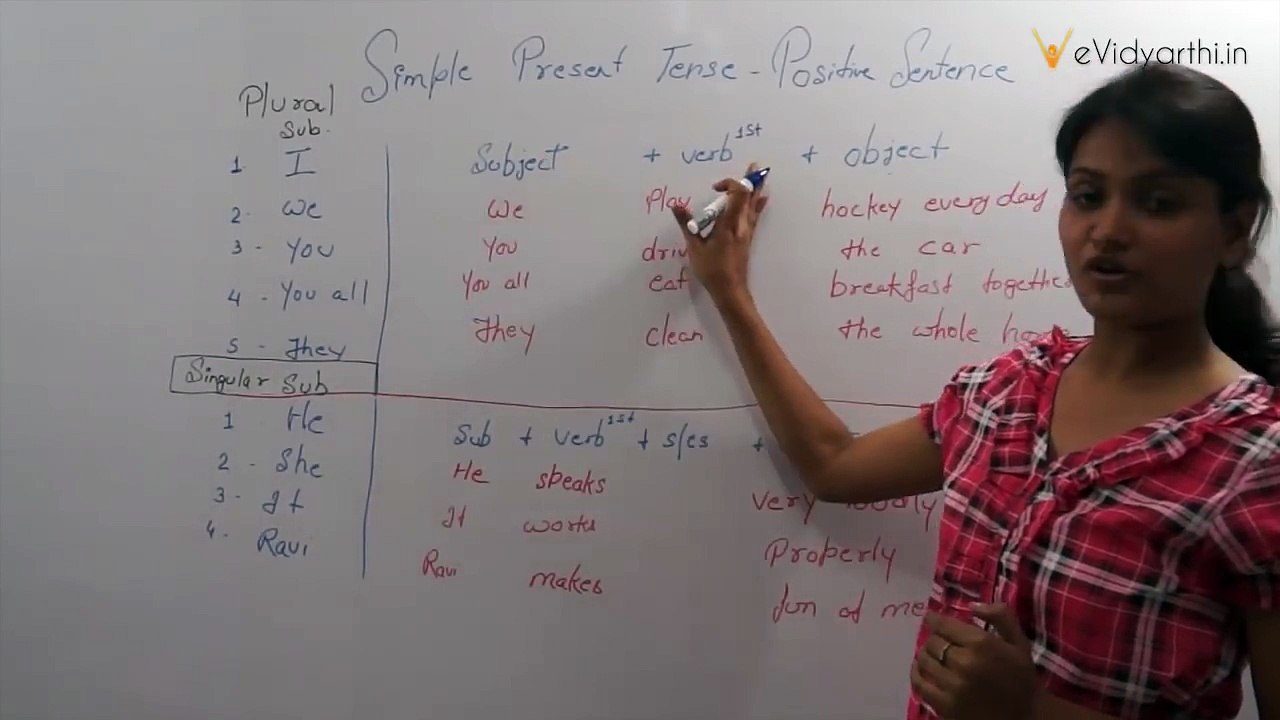 eVidyarthi.in
Simple Present Tense - Positive Sentence
Plural
Sub.
1 I
2. We
3 - You
4 - You all
5 - They
Subject + verb 1st + object
We Play hockey every day
You the car
You all eat breakfast together
They clean the whole
Singular Sub
1 He
2 - She
3 - It
4. Ravi
Sub + verb 1st + s/es +
He speaks very
It works Properly
Ravi makes fun of me